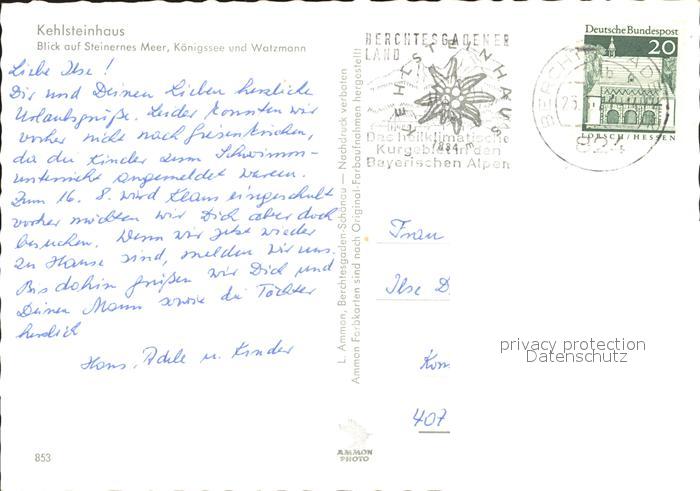 Kehlsteinhaus
Blick auf Steinernes Meer, Königssee und Watzmann
Liebe Ilse!
Dir und Deinen Lieben herzliche
Urlaubsgrüße. Leider konnten wir
vorher nicht nach kommen,
da die Kinder zum Schwimm-
unterricht angemeldet waren.
Zum 16. 8. wird Klaus eingeschult
vorher möchten wir Dich aber doch
besuchen. Wenn wir jetzt wieder
zu Hause sind, melden wir uns.
Bis dahin grüßen wir Dich und
Deinen Mann sowie die Töchter
herzlich
Hans, Adele u. Kinder
853
L. Ammon, Berchtesgaden-Schönau — Nachdruck verboten
Ammon Farbkarten sind nach Original-Farbaufnahmen hergestellt
AMMON
PHOTO
BERCHTESGADENER
LAND
KEHLSTEINHAUS
1884 m
Das heilklimatische
Kurgebiet in den
Bayerischen Alpen
Deutsche Bundespost
20
LORSCH/HESSEN
824
Frau
Ilse D
Kom
407
privacy protection
Datenschutz